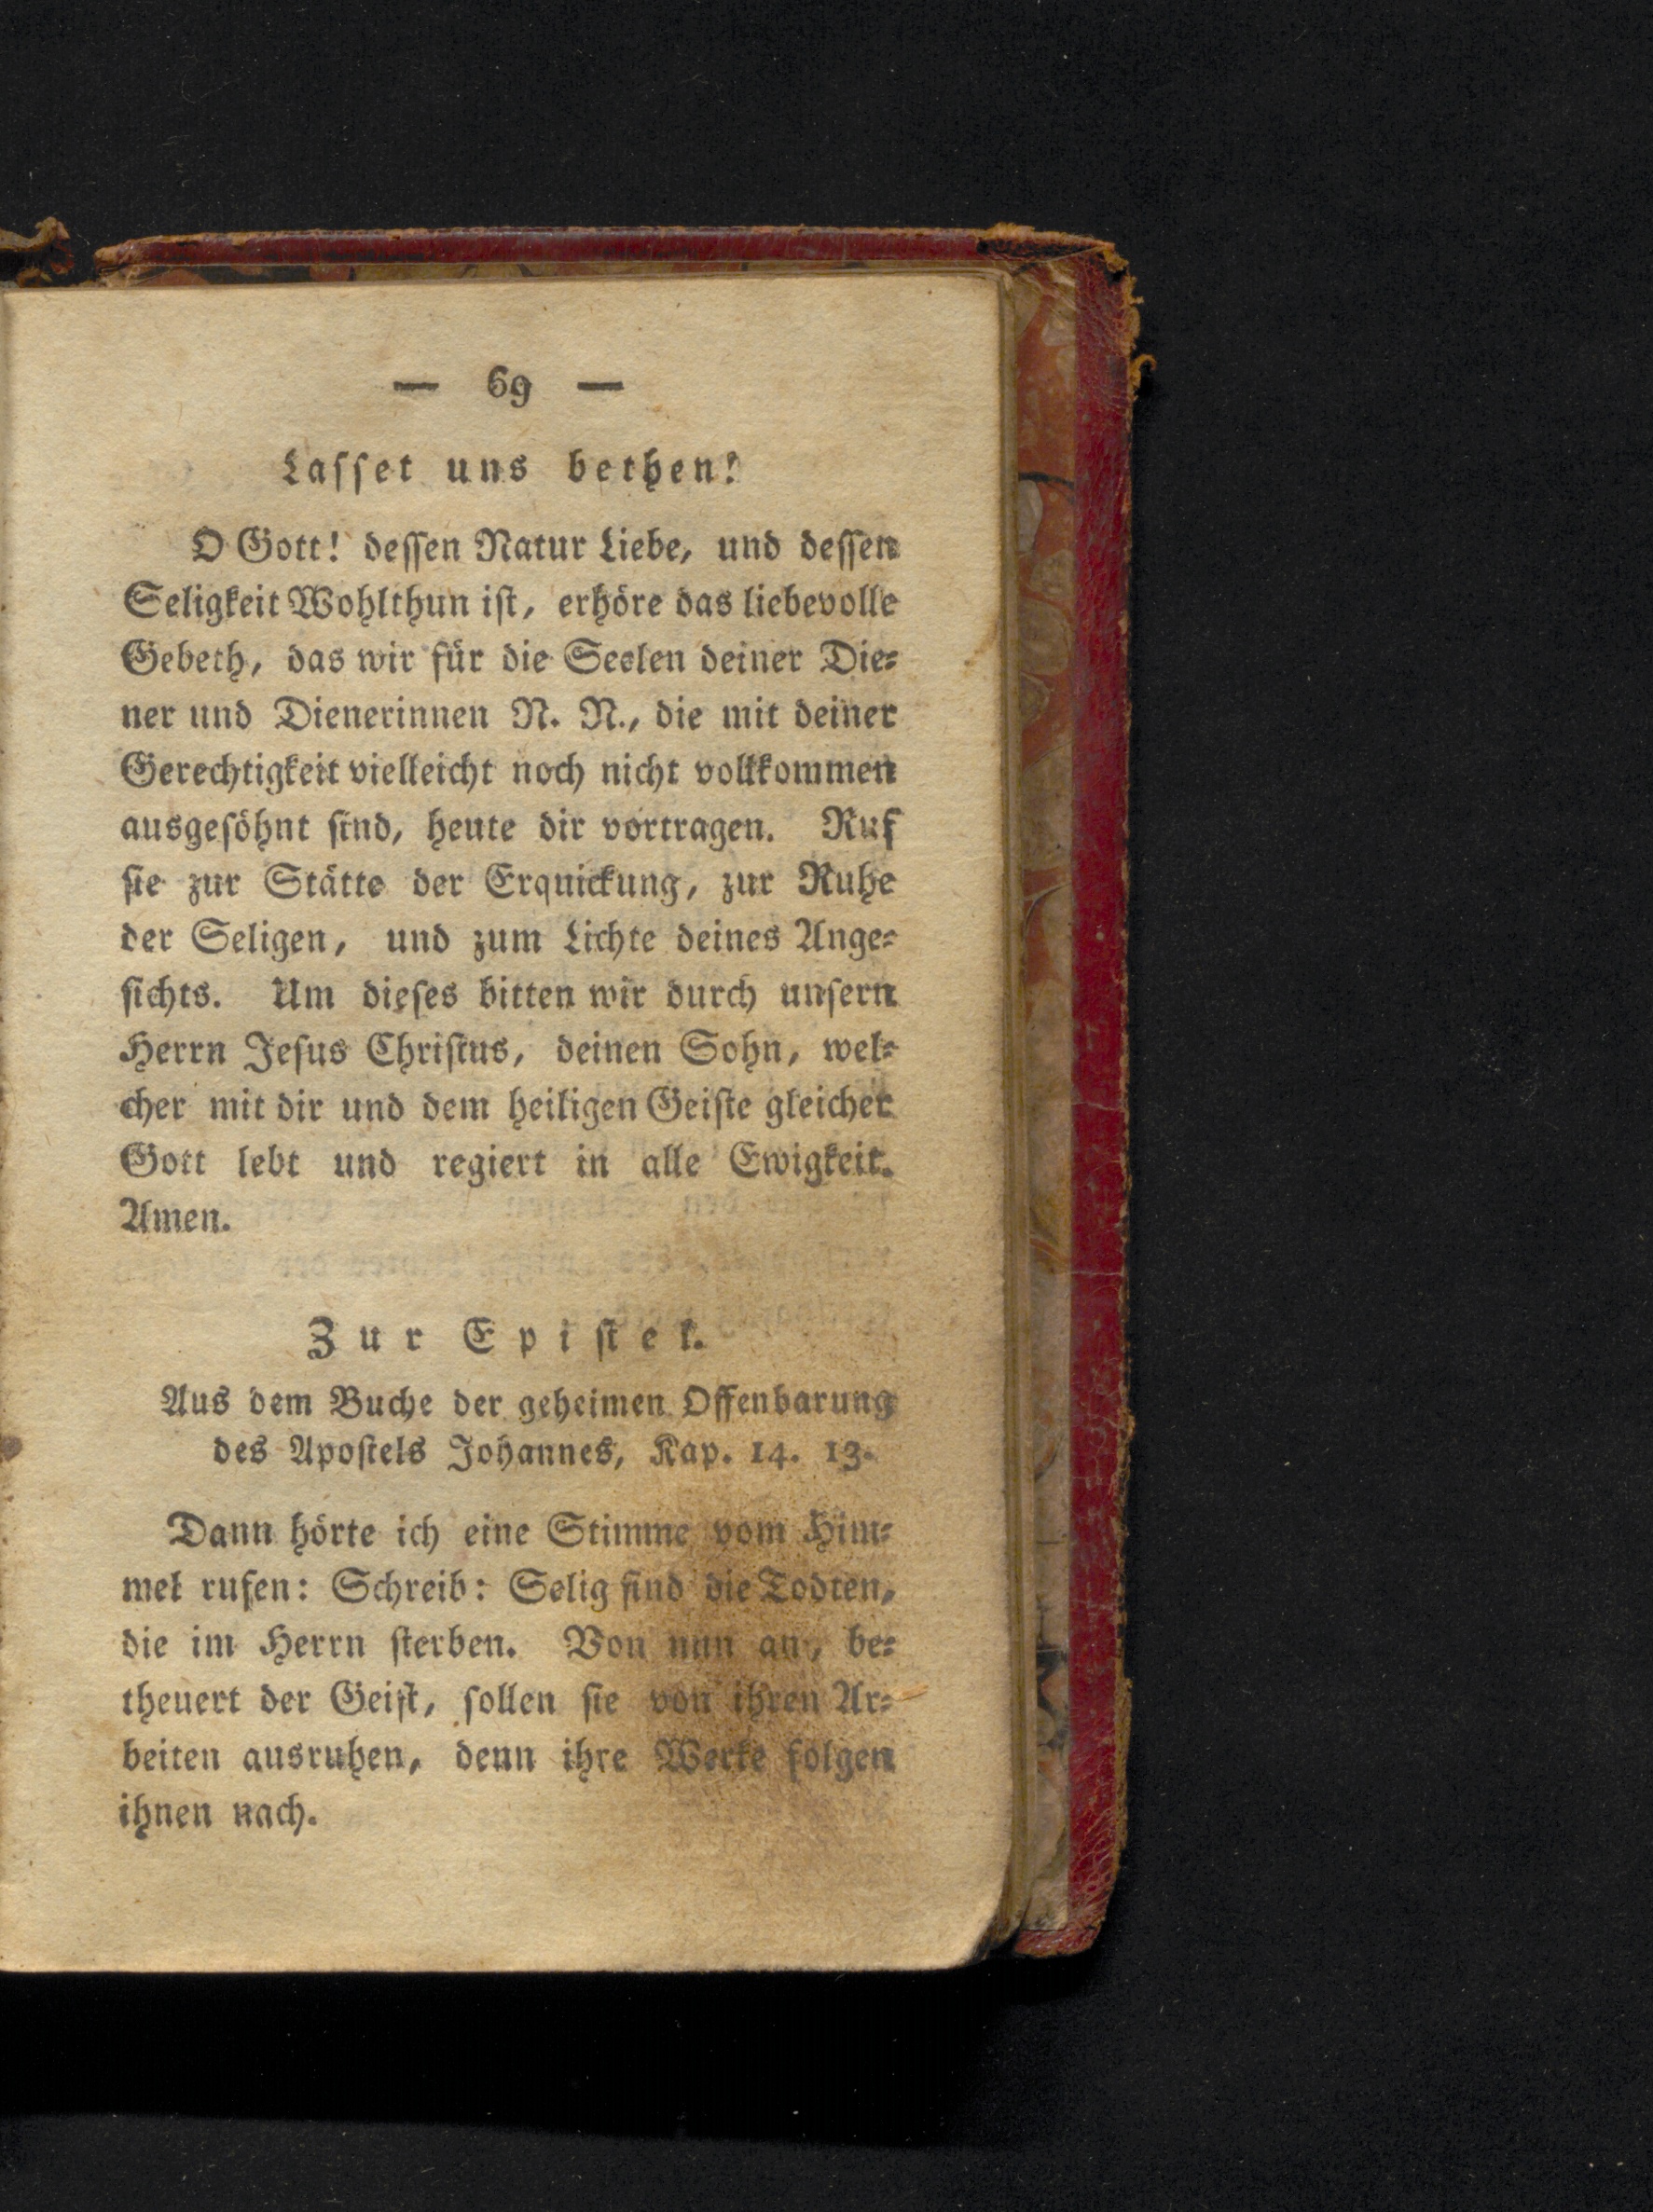 — 69 —
Lasset uns bethen!
O Gott! dessen Natur Liebe, und dessen
Seligkeit Wohlthun ist, erhöre das liebevolle
Gebeth, das wir für die Seelen deiner Die⸗
ner und Dienerinnen N. N., die mit deiner
Gerechtigkeit vielleicht noch nicht vollkommen
ausgesöhnt sind, heute dir vortragen. Ruf
sie zur Stätte der Erquickung, zur Ruhe
der Seligen, und zum Lichte deines Ange⸗
sichts. Um dieses bitten wir durch unsern
Herrn Jesus Christus, deinen Sohn, wel⸗
cher mit dir und dem heiligen Geiste gleicher
Gott lebt und regiert in alle Ewigkeit.
Amen.
Zur Epistel.
Aus dem Buche der geheimen Offenbarung
des Apostels Johannes, Kap. 14. 13.
Dann hörte ich eine Stimme vom Him⸗
mel rufen: Schreib: Selig sind die Todten,
die im Herrn sterben. Von nun an, be⸗
theuert der Geist, sollen sie von ihren Ar⸗
beiten ausruhen, denn ihre Werke folgen
ihnen nach.